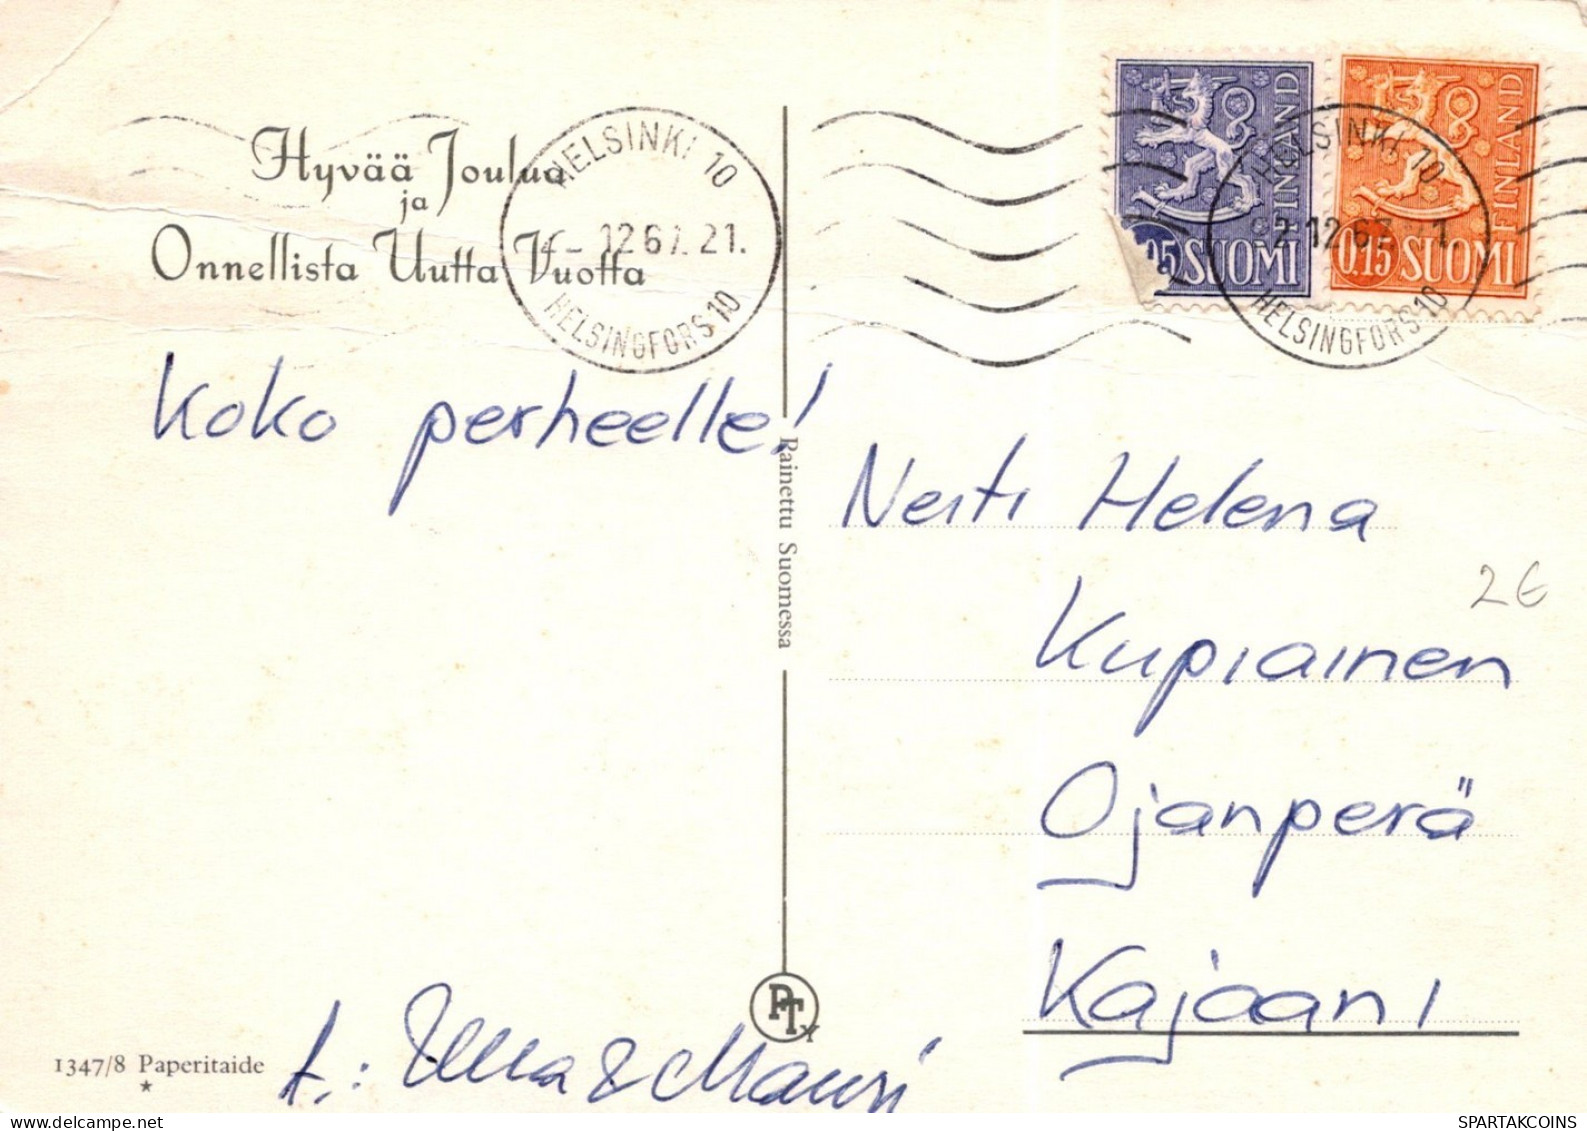 Hyvää Joulua
ja
Onnellista Uutta Vuotta
HELSINKI 10
- 12.67. 21.
HELSINGFORS 10
FINLAND
05 SUOMI
FINLAND
0.15 SUOMI
HELSINKI 10
2.12.67 21.
HELSINGFORS 10
Koko perheelle!
Rainettu Suomessa
Neiti Helena
2€
Kupiainen
Ojanperä
Kajaani
PTY
1347/8 Paperitaide
★
t.: Ulla & Mauri
SPARTAKCOINS.COM